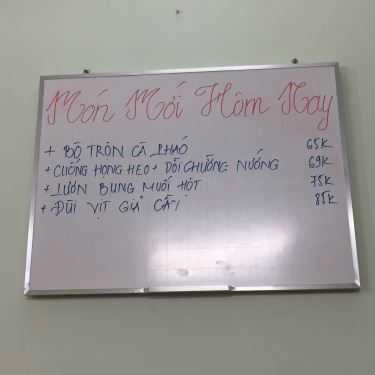 Món Mới Hôm Nay
+ BÒ TRỘN CÀ PHÁO 65K
+ CUỐNG HỌNG HEO + DỒI CHUỒNG NƯỚNG 69K
+ LƯƠN BUNG MUỐI HỘT 75K
+ ĐÙI VỊT GIẢ CẦY 85K